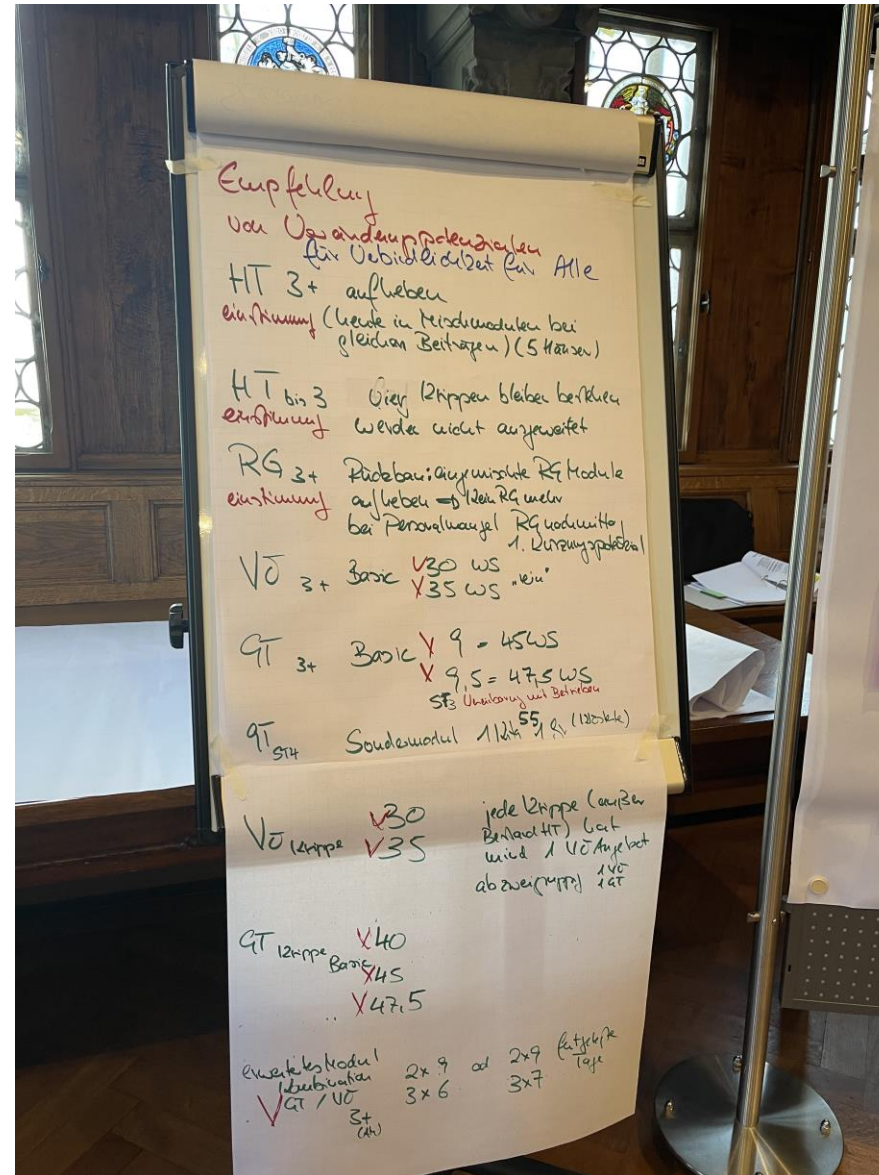 Empfehlung
von Veränderungspotenzialen
für Verbindlichkeit für Alle
HT 3+ aufheben
einstimmig (heute in Mischmodulen bei
gleichen Beiträgen) (5 Häuser)
HT bis 3 Krippen bleiben bestehen
einstimmig werden nicht ausgeweitet
RG 3+ Rückbau: eingemischte RG Module
einstimmig aufheben → kein RG mehr
bei Personalmangel RG nachmittag
1. Kürzungspotenzial
VÖ 3+ Basic V 30 WS
35 WS
GT 3+ Basic 9 = 45 WS
9,5 = 47,5 WS
ST3 mit Betrieben
GT ST4 Sondermodul 55
VÖ Krippe V 30 jede Krippe (außer
V 35 Bestand HT) hat
mind 1 VÖ Angebot
ab zweigruppig 1 VÖ
1 GT
GT Krippe 40
Basic 45
47,5
erweitertes Modul
Kombination 2x9 od 2x9 festgelegte
V GT / VÖ 3x6 3x7 Tage
3+